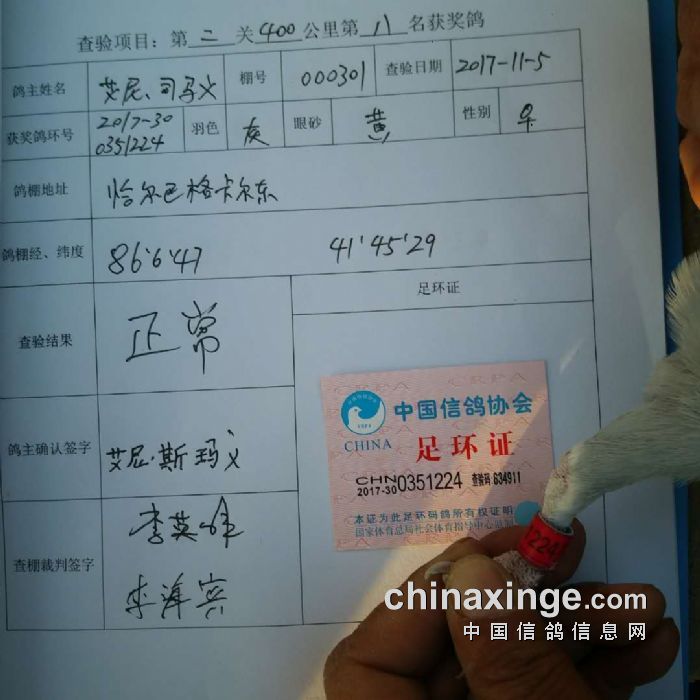 查验项目：第二关400公里第八名获奖鸽
鸽主姓名 艾尼、司马义 棚号 000301 查验日期 2017-11-5
获奖鸽环号 2017-30 0351224 羽色 灰 眼砂 黄 性别
鸽棚地址 恰尔巴格卡尔东
鸽棚经、纬度 86'6'47 41'45'29
查验结果 正常 足环证
鸽主确认签字 艾尼·斯玛义
查棚裁判签字 李英
李 宾
CRPA
CHINA
中国信鸽协会
足环证
CHN
2017-30 0351224 查验码:834911
本证为此足环码鸽所有权证明
国家体育总局社会体育指导中心监制
1224
chinaxinge.com
中国信鸽信息网